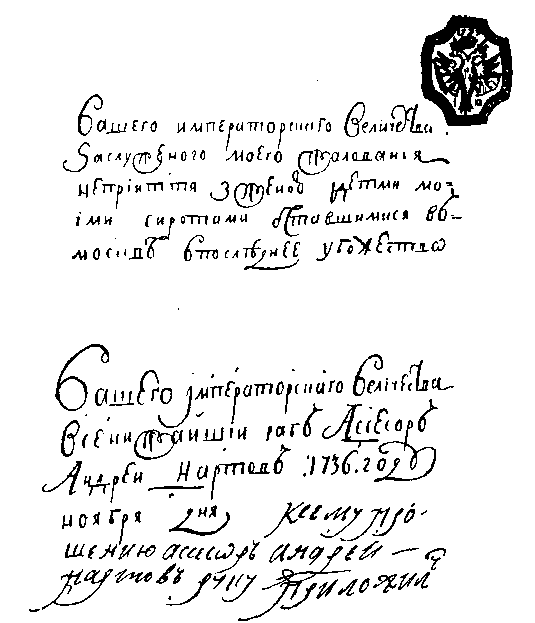 Вашего императорскаго величества
Заслуженого моего жалованья
непріятія з женою и детми мо=
іми сиротами
вპослѣднее убожество
Вашего імператорскаго величества
всенижайшіи рабъ Ассесоръ
Андреи Нартовъ 1736. году
ноября дня ксему про-
шению асесоръ андреи
нартовъ руку приложилъ